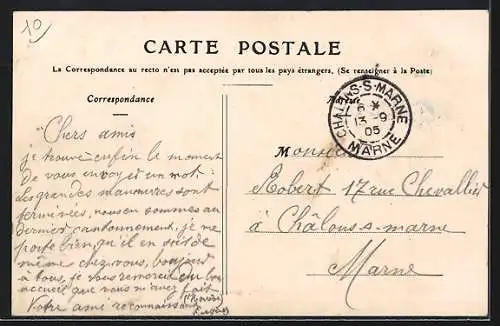 10
CARTE POSTALE
La Correspondance au recto n'est pas acceptée par tous les pays étrangers. (Se renseigner à la Poste)
Correspondance
CHALONS-S-MARNE
13-9
05
MARNE
Chers amis
je trouve enfin le moment
de vous envoyer un mot.
les grandes manœuvres sont
terminées, nous en sommes au
dernier cantonnement, je me
porte bien, qu'il en soit de
même chez vous, bonjour
à tous, je vous remercie du bon
accueil que vous m'avez fait
Votre ami reconnaissant
Monsieur
Robert 17 rue Chevallier
à Châlons s-marne
Marne